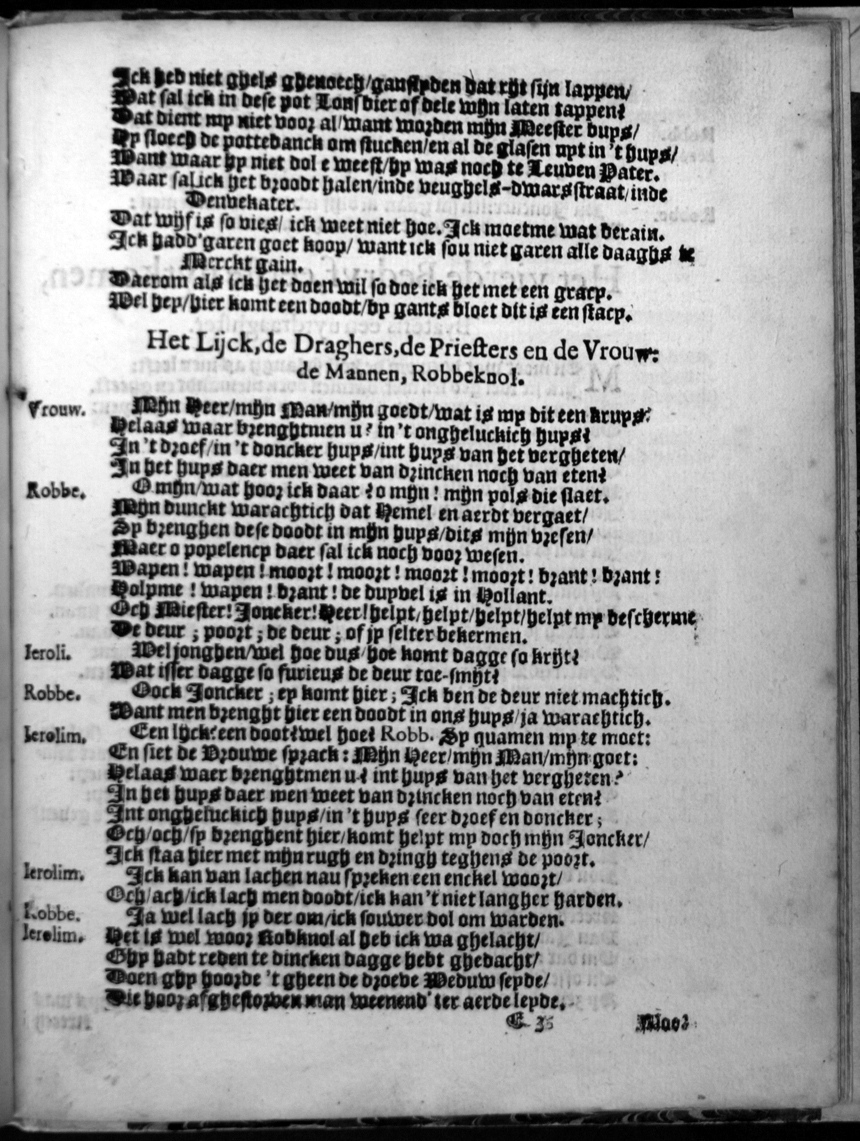 Ick heb niet ghels ghenoech/ganslyden dat rijt sijn lappen/
Wat sal ick in dese pot Lonsbier of dele wijn laten tappen?
Dat dient my niet voor al/want worden mijn Meester buys/
Hy sloech de pottebanck om stucken/en al de glasen uyt in 't huys/
Want waar hy niet dol e weest/hy was noch te Leuven Pater.
Waar sal ick het broodt halen/inde veughels-dwarsstraat/inde
Denvekater.
Dat wijf is so vies/ ick weet niet hoe. Ick moetme wat berain.
Ick hadd' garen goet koop/ want ick sou niet garen alle daaghs te
Merckt gain.
Daerom als ick het doen wil so doe ick het met een gracy.
Wel hey/hier komt een doodt/by gants bloet dit is een stacy.
Het Lijck, de Draghers, de Priesters en de Vrouw:
de Mannen, Robbeknol.
Vrouw. Mijn Heer/mijn Man/mijn goedt/wat is my dit een kruys?
Helaas waar brenghtmen u? in 't ongheluckich huys?
In 't droef/in 't doncker huys/int huys van het vergheten/
In het huys daer men weet van drincken noch van eten?
Robbe. O mijn/wat hoor ick daar? o mijn! mijn pols die slaet.
Mijn dunckt warachtich dat Hemel en aerdt vergaet/
Sy brenghen dese doodt in mijn huys/dits mijn vresen/
Maer o popelency daer sal ick noch voor wesen.
Wapen! wapen! moort! moort! moort! moort! brant! brant!
Holpme! wapen! brant! de duyvel is in Hollant.
Och Miester! Joncker! Heer! helpt/helpt/helpt/helpt my bescherme
De deur; poort; de deur; of jy selter bekermen.
Ieroli. Wel jonghen/wel hoe dus/hoe komt dagge so krijt?
Wat isser dagge so furieus de deur toe-smijt?
Robbe. Oock Joncker; ey komt hier; Ick ben de deur niet machtich.
Want men brenght hier een doodt in ons huys/ja warachtich.
Ierolim. Een lijck? een doot? wel hoe? Robb. Sy quamen my te moet:
En siet de Vrouwe sprack: Mijn Heer/mijn Man/mijn goet:
Helaas waer brenghtmen u? int huys van het vergheten?
In het huys daer men weet van drincken noch van eten?
Int ongheluckich huys/in 't huys seer droef en doncker;
Och/och/sy brenghent hier/komt helpt my doch mijn Joncker/
Ick staa hier met mijn rugh en dringh teghens de poort.
Ierolim. Ick kan van lachen nau spreken een enckel woort/
Och/ach/ick lach men doodt/ick kan't niet langher harden.
Robbe. Ja wel lach jy der om/ick souwer dol om warden.
Ierolim. Het is wel woor Robknol al heb ick wa ghelacht/
Ghy hadt reden te dincken dagge hebt ghedacht/
Doen ghy hoorde 't gheen de droeve Weduw seyde/
Die hoor afghestorven man weenend' ter aerde leyde.
E